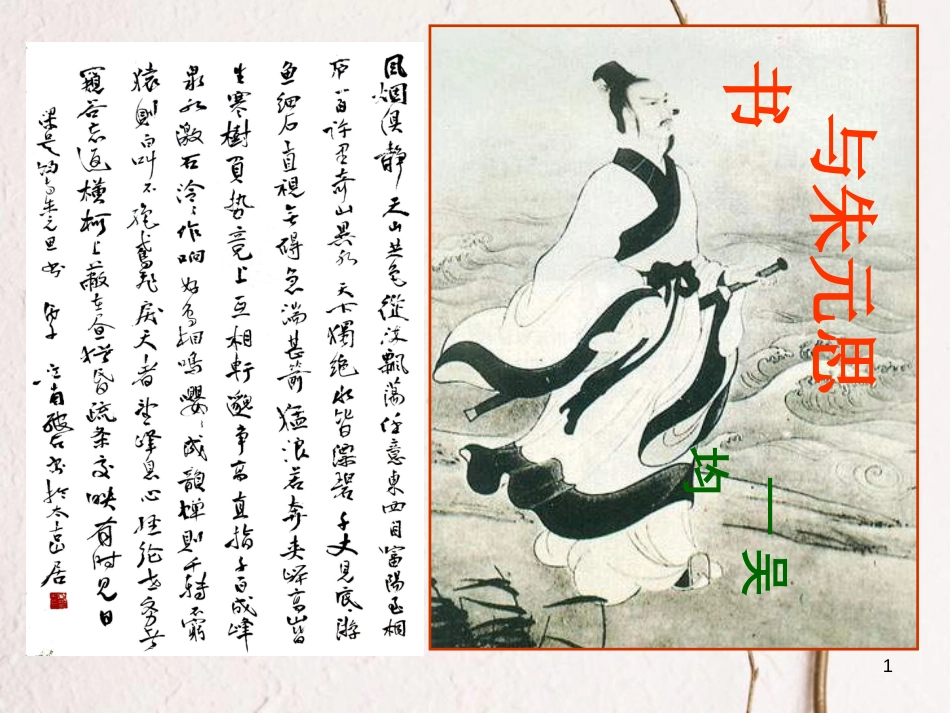 与朱元思
书
—吴
均
風烟俱静天山共色從流飄蕩任意東西自富陽至桐
庐一百许里奇山異水天下獨绝水皆漂碧千丈見底游
鱼细石直視无碍急湍甚箭猛浪若奔夹岸高山皆
生寒樹負势竞上互相軒邈争高直指千百成峰
泉水激石泠泠作响好鸟相鸣嘤嘤成韵蟬則千轉不窮
猿則百叫不绝鸢飛戾天者望峰息心经纶世务者
窺谷忘返横柯上蔽在昼犹昏疏条交映有时見日
梁吴均与朱元思书
1